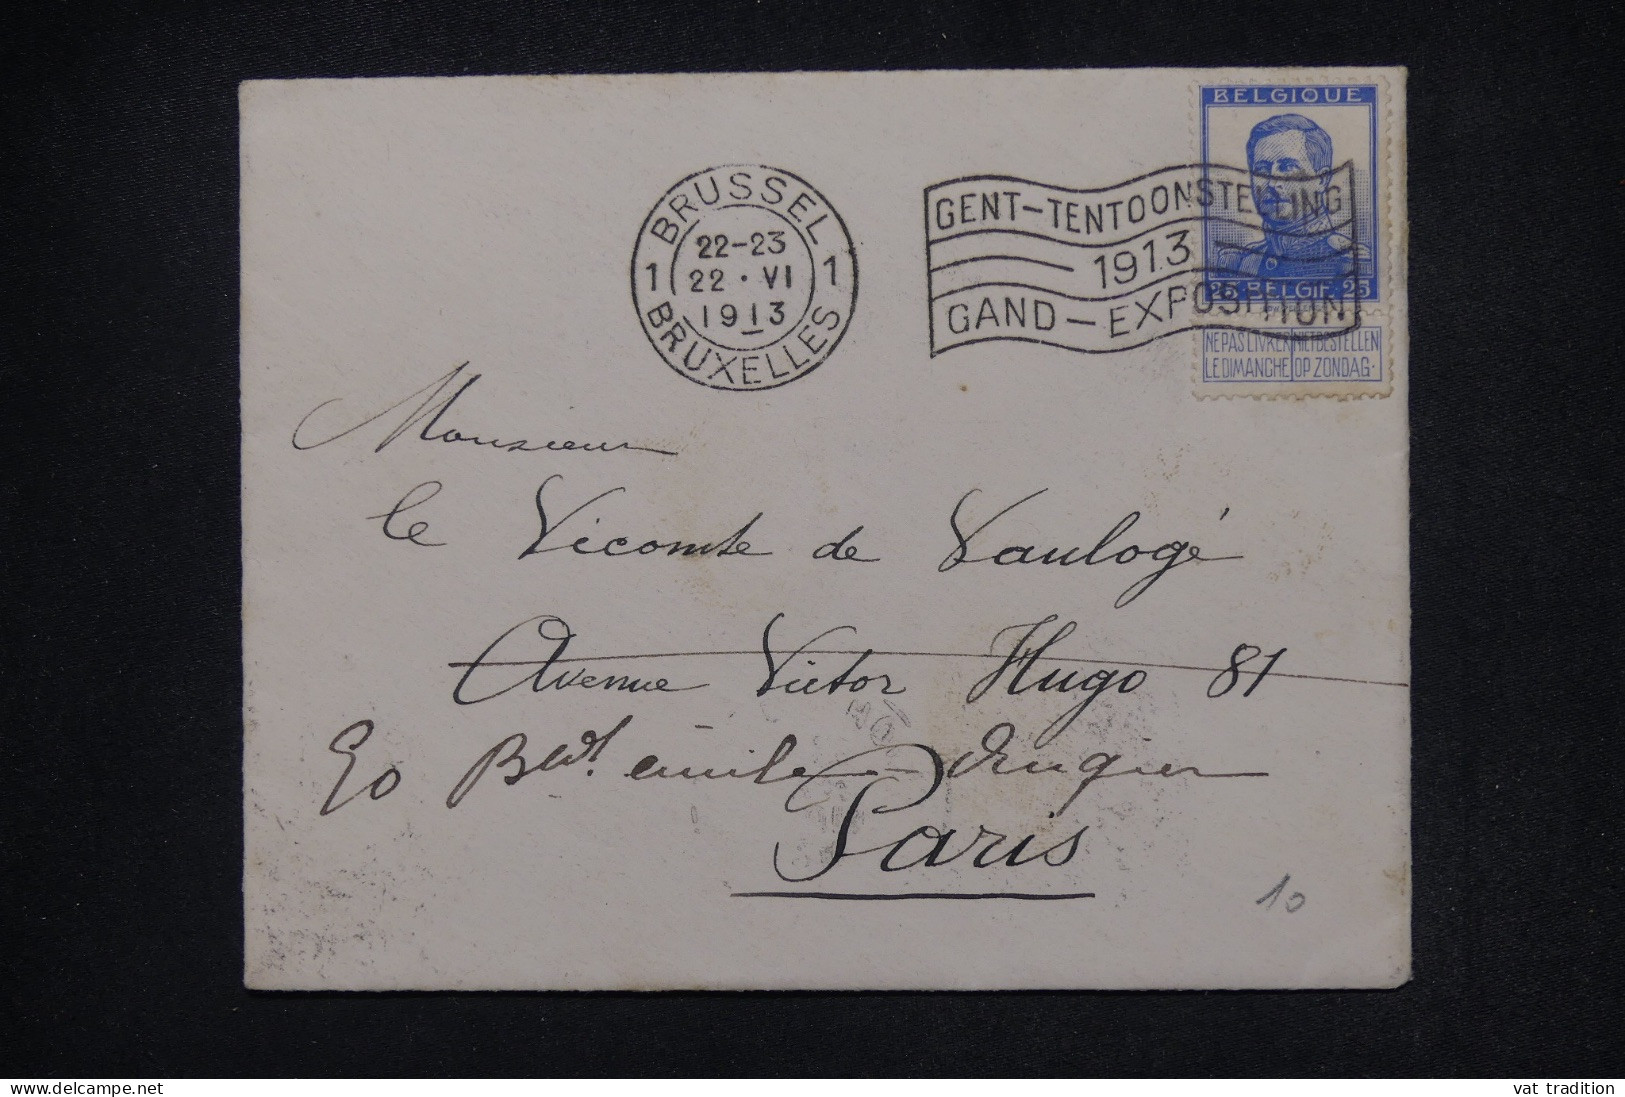 BELGIQUE
25 BELGIË 25
NE PAS LIVRER NIET BESTELLEN
LE DIMANCHE OP ZONDAG.
BRUSSEL
22-23
1 22 · VI 1
1913
BRUXELLES
GENT-TENTOONSTELLING
1913
GAND-EXPOSITION
Monsieur
le Vicomte de Vaulogé
Avenue Victor Hugo 81
Bd. émile Augier
Paris
10
www.delcampe.net
vat tradition